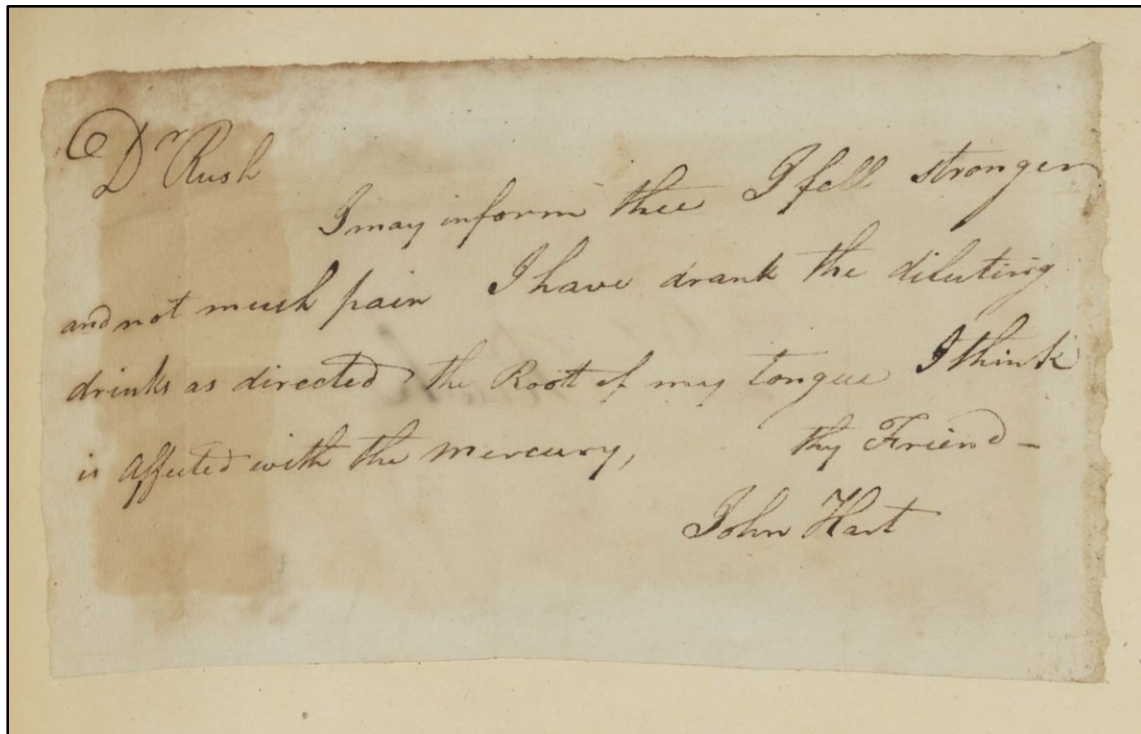 Dr Rush
I may inform thee I fell stronger
and not much pain I have drank the diluting
drinks as directed the Roott of my tongue I think
is affected with the mercury, thy Friend –
John Hart